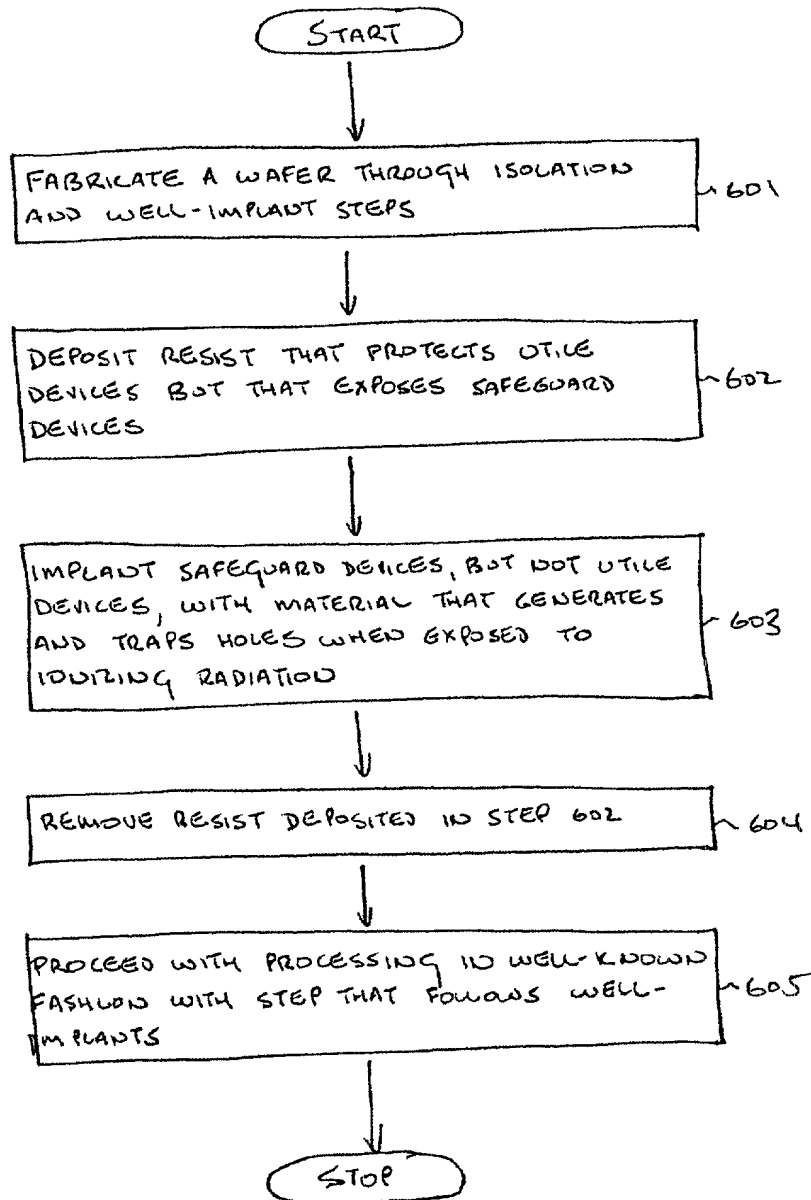 START
FABRICATE A WAFER THROUGH ISOLATION
AND WELL-IMPLANT STEPS
601
DEPOSIT RESIST THAT PROTECTS UTILE
DEVICES BUT THAT EXPOSES SAFEGUARD
DEVICES
602
IMPLANT SAFEGUARD DEVICES, BUT NOT UTILE
DEVICES, WITH MATERIAL THAT GENERATES
AND TRAPS HOLES WHEN EXPOSED TO
IONIZING RADIATION
603
REMOVE RESIST DEPOSITED IN STEP 602
604
PROCEED WITH PROCESSING IN WELL-KNOWN
FASHION WITH STEP THAT FOLLOWS WELL-
IMPLANTS
605
STOP